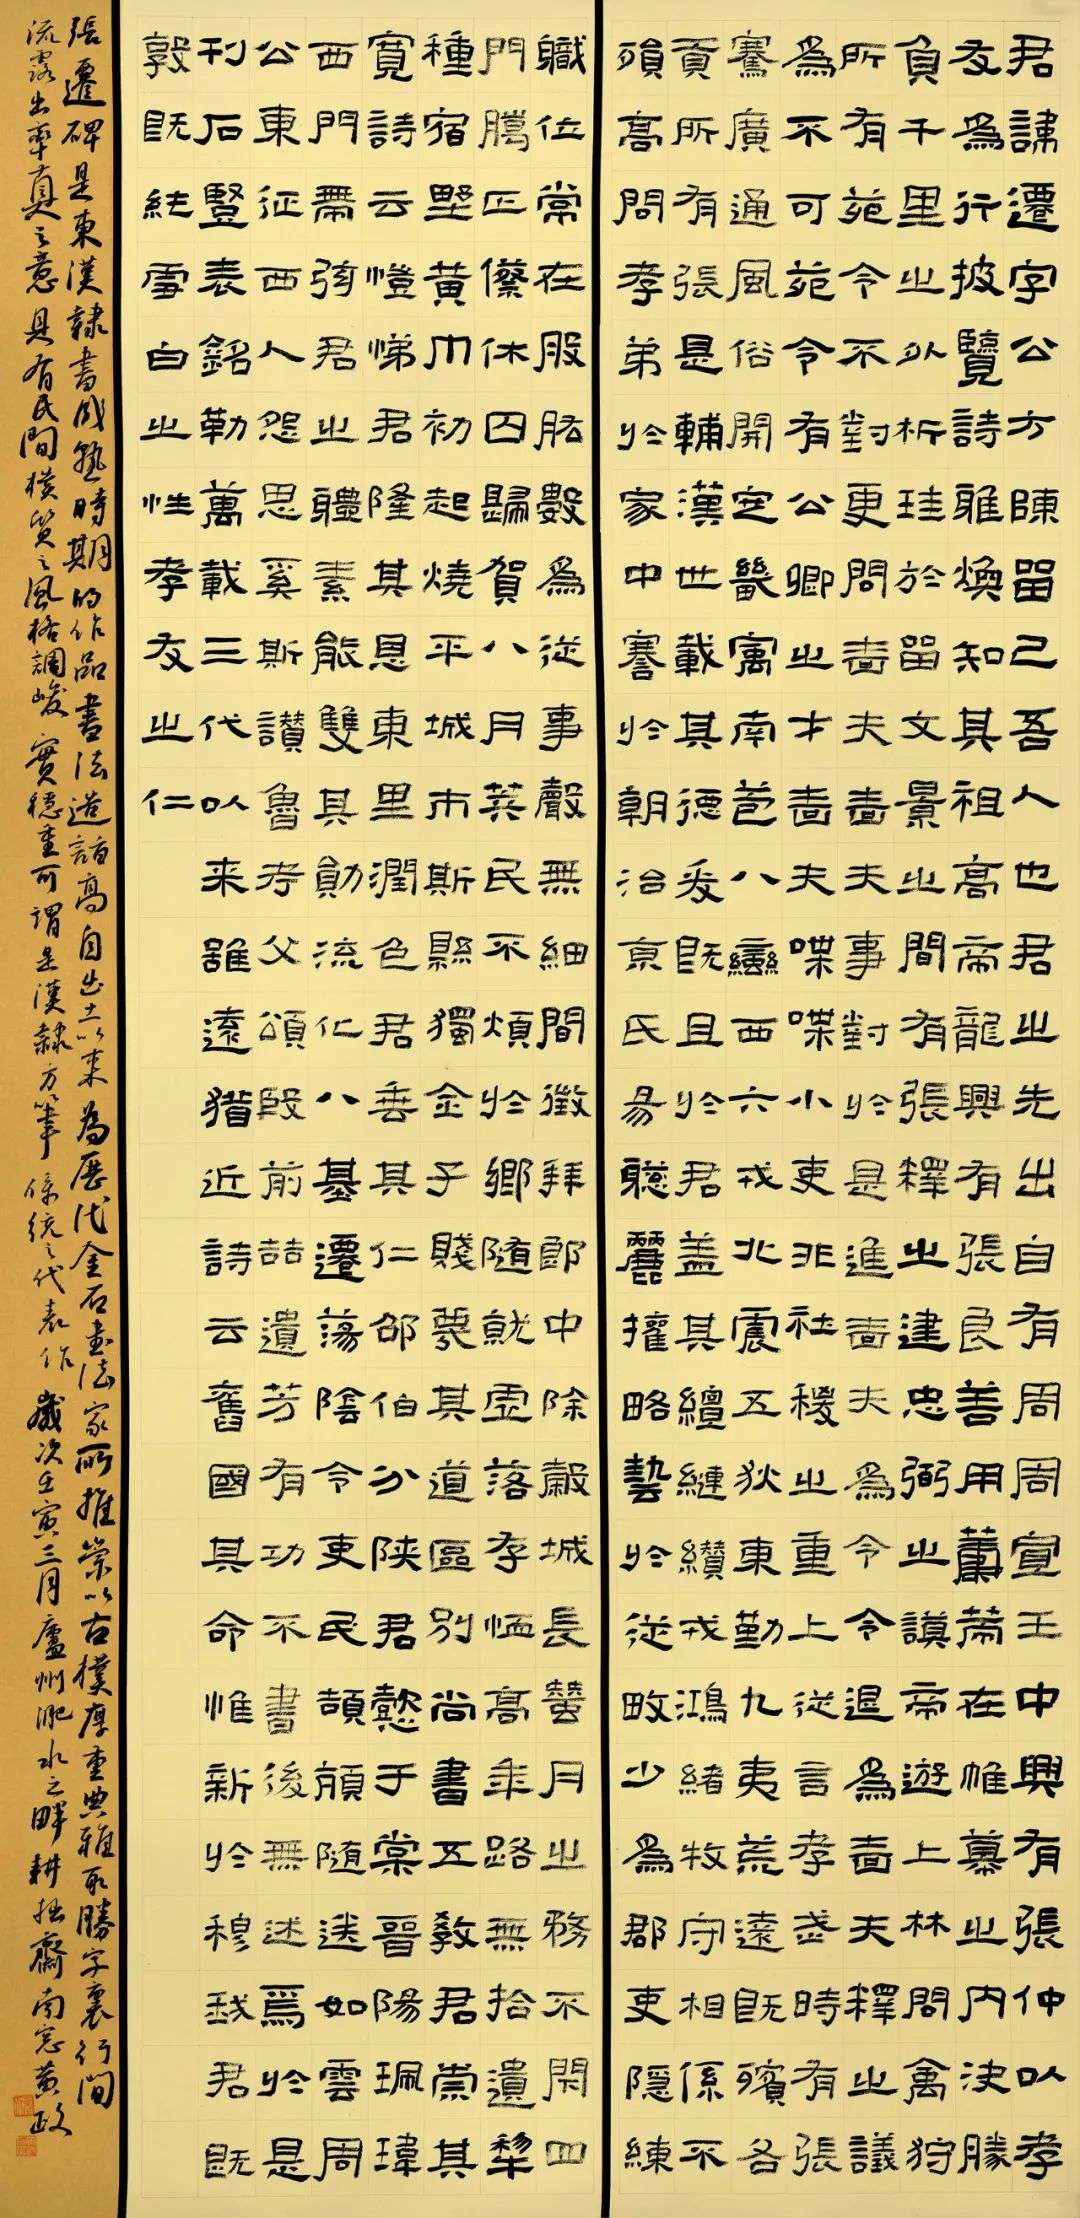 君諱遷字公方陳留己吾人也君之先出自有周周宣王中興有張仲以孝
友為行披覽詩雅煥知其祖高帝龍興有張良善用籌策在帷幕之內決勝
負千里之外析珪於留文景之間有張釋之建忠弼之謨帝遊上林問禽狩
所有苑令不對更問嗇夫嗇夫事對於是進嗇夫為令令退為嗇夫釋之議
為不可苑令有公卿之才嗇夫喋喋小吏非社稷之重上從言孝武時有張
騫廣通風俗開定畿寓南苞八蠻西六戎北震五狄東勤九夷荒遠既殯各
貢所有張是輔漢世載其德爰既且於君蓋其繵縺纘戎鴻緒牧守相係不
殞高問孝弟於家中謇於朝治京氏易聰麗權略藝於從畋少為郡吏隱練
職位常在股肱數為從事聲無細聞徵拜郎中除穀城長蠶月之務不閑四
門騰正僬休囚歸賀八月筭民不煩於鄉隨就虛落存恤高年路無拾遺犂
種宿野黃巾初起燒平城市斯縣獨全子賤其道區別尚書五教君崇其
寬詩云愷悌君隆其恩東里潤色君垂其仁邵伯分陝君懿于棠晉陽珮瑋
西門帶弦君之體素能雙其勛流化八基遷蕩陰令吏民頡頏隨送如雲周
公東征西人怨思奚斯讚魯考父頌殷前喆遺芳有功不書後無述焉於是
刊石豎表銘勒萬載三代以來雖遠猶近詩云舊國其命惟新於穆我君既
敦既純雪白之性孝友之仁
張遷碑是東漢隸書成熟時期的作品書法造詣高自出土以來為歷代金石書法家所推崇以古樸厚重典雅取勝字裏行間
流露出率真之意具有民間樸質之風格調峻實穩重可謂是漢隸方筆係統之代表作歲次壬寅三月廬州淝水之畔耕拙齋南窗黃政